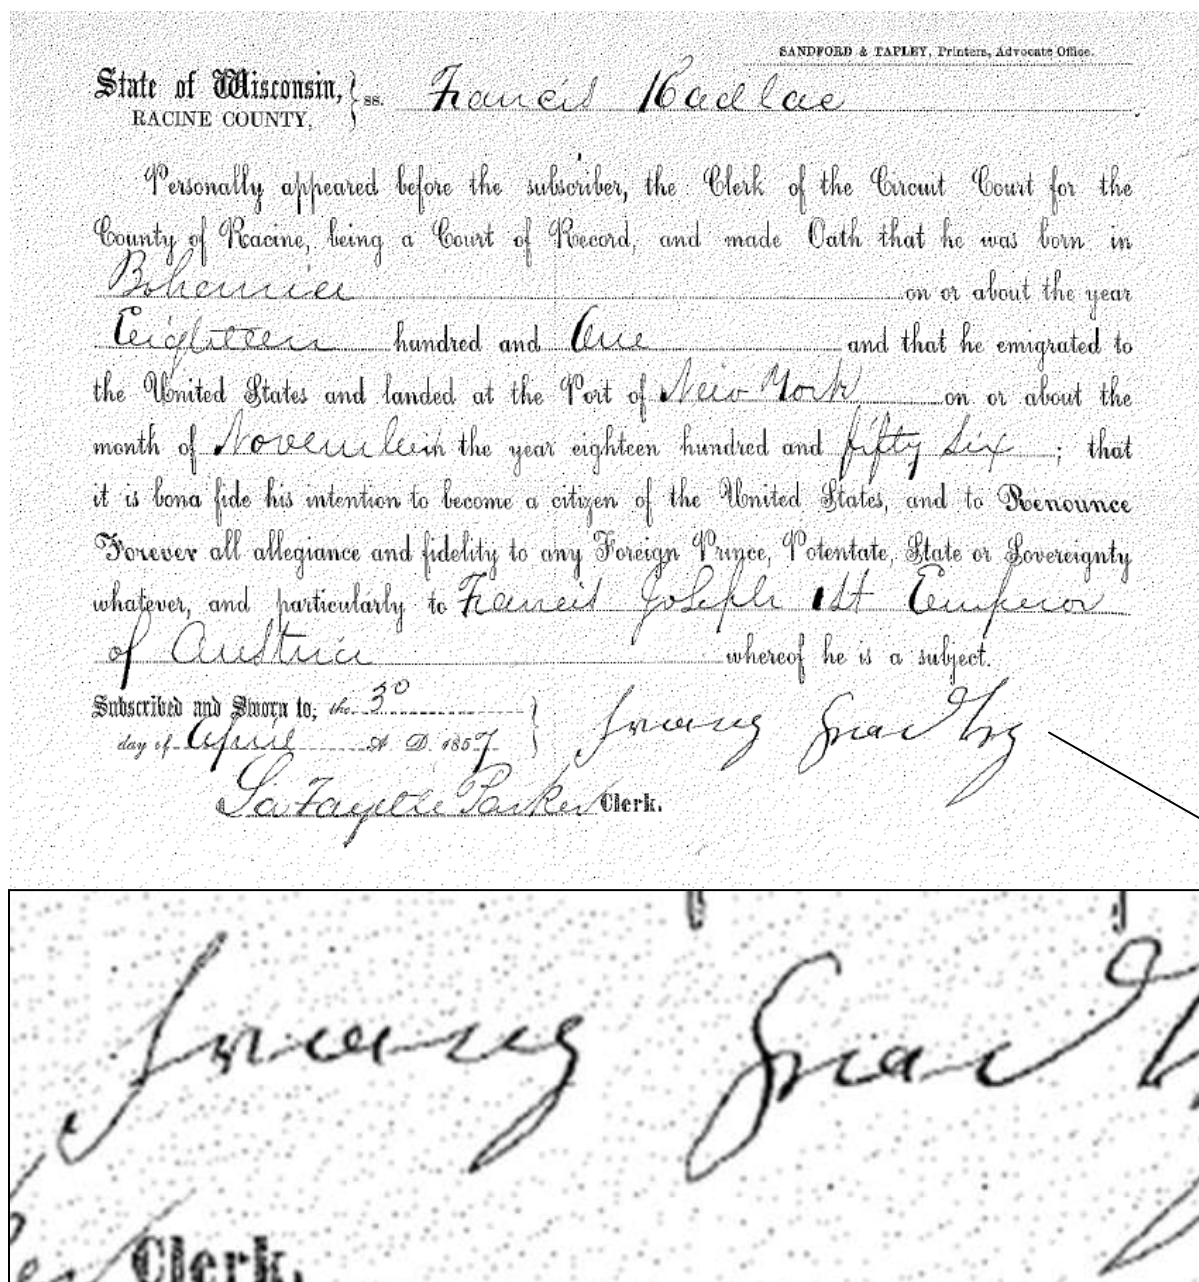 SANDFORD & TAPLEY, Printers, Advocate Office.
State of Wisconsin, } ss. Francis Kadlac
RACINE COUNTY,
Personally appeared before the subscriber, the Clerk of the Circuit Court for the
County of Racine, being a Court of Record, and made Oath that he was born in
Bohemia on or about the year
Eighteen hundred and One and that he emigrated to
the United States and landed at the Port of New York on or about the
month of November in the year eighteen hundred and fifty six ; that
it is bona fide his intention to become a citizen of the United States, and to Renounce
Forever all allegiance and fidelity to any Foreign Prince, Potentate, State or Sovereignty
whatever, and particularly to Francis Joseph 1st Emperor
of Austria whereof he is a subject.
Subscribed and Sworn to, the 3d
day of April A. D. 1857 }
La Fayette Parker Clerk.
Clerk.